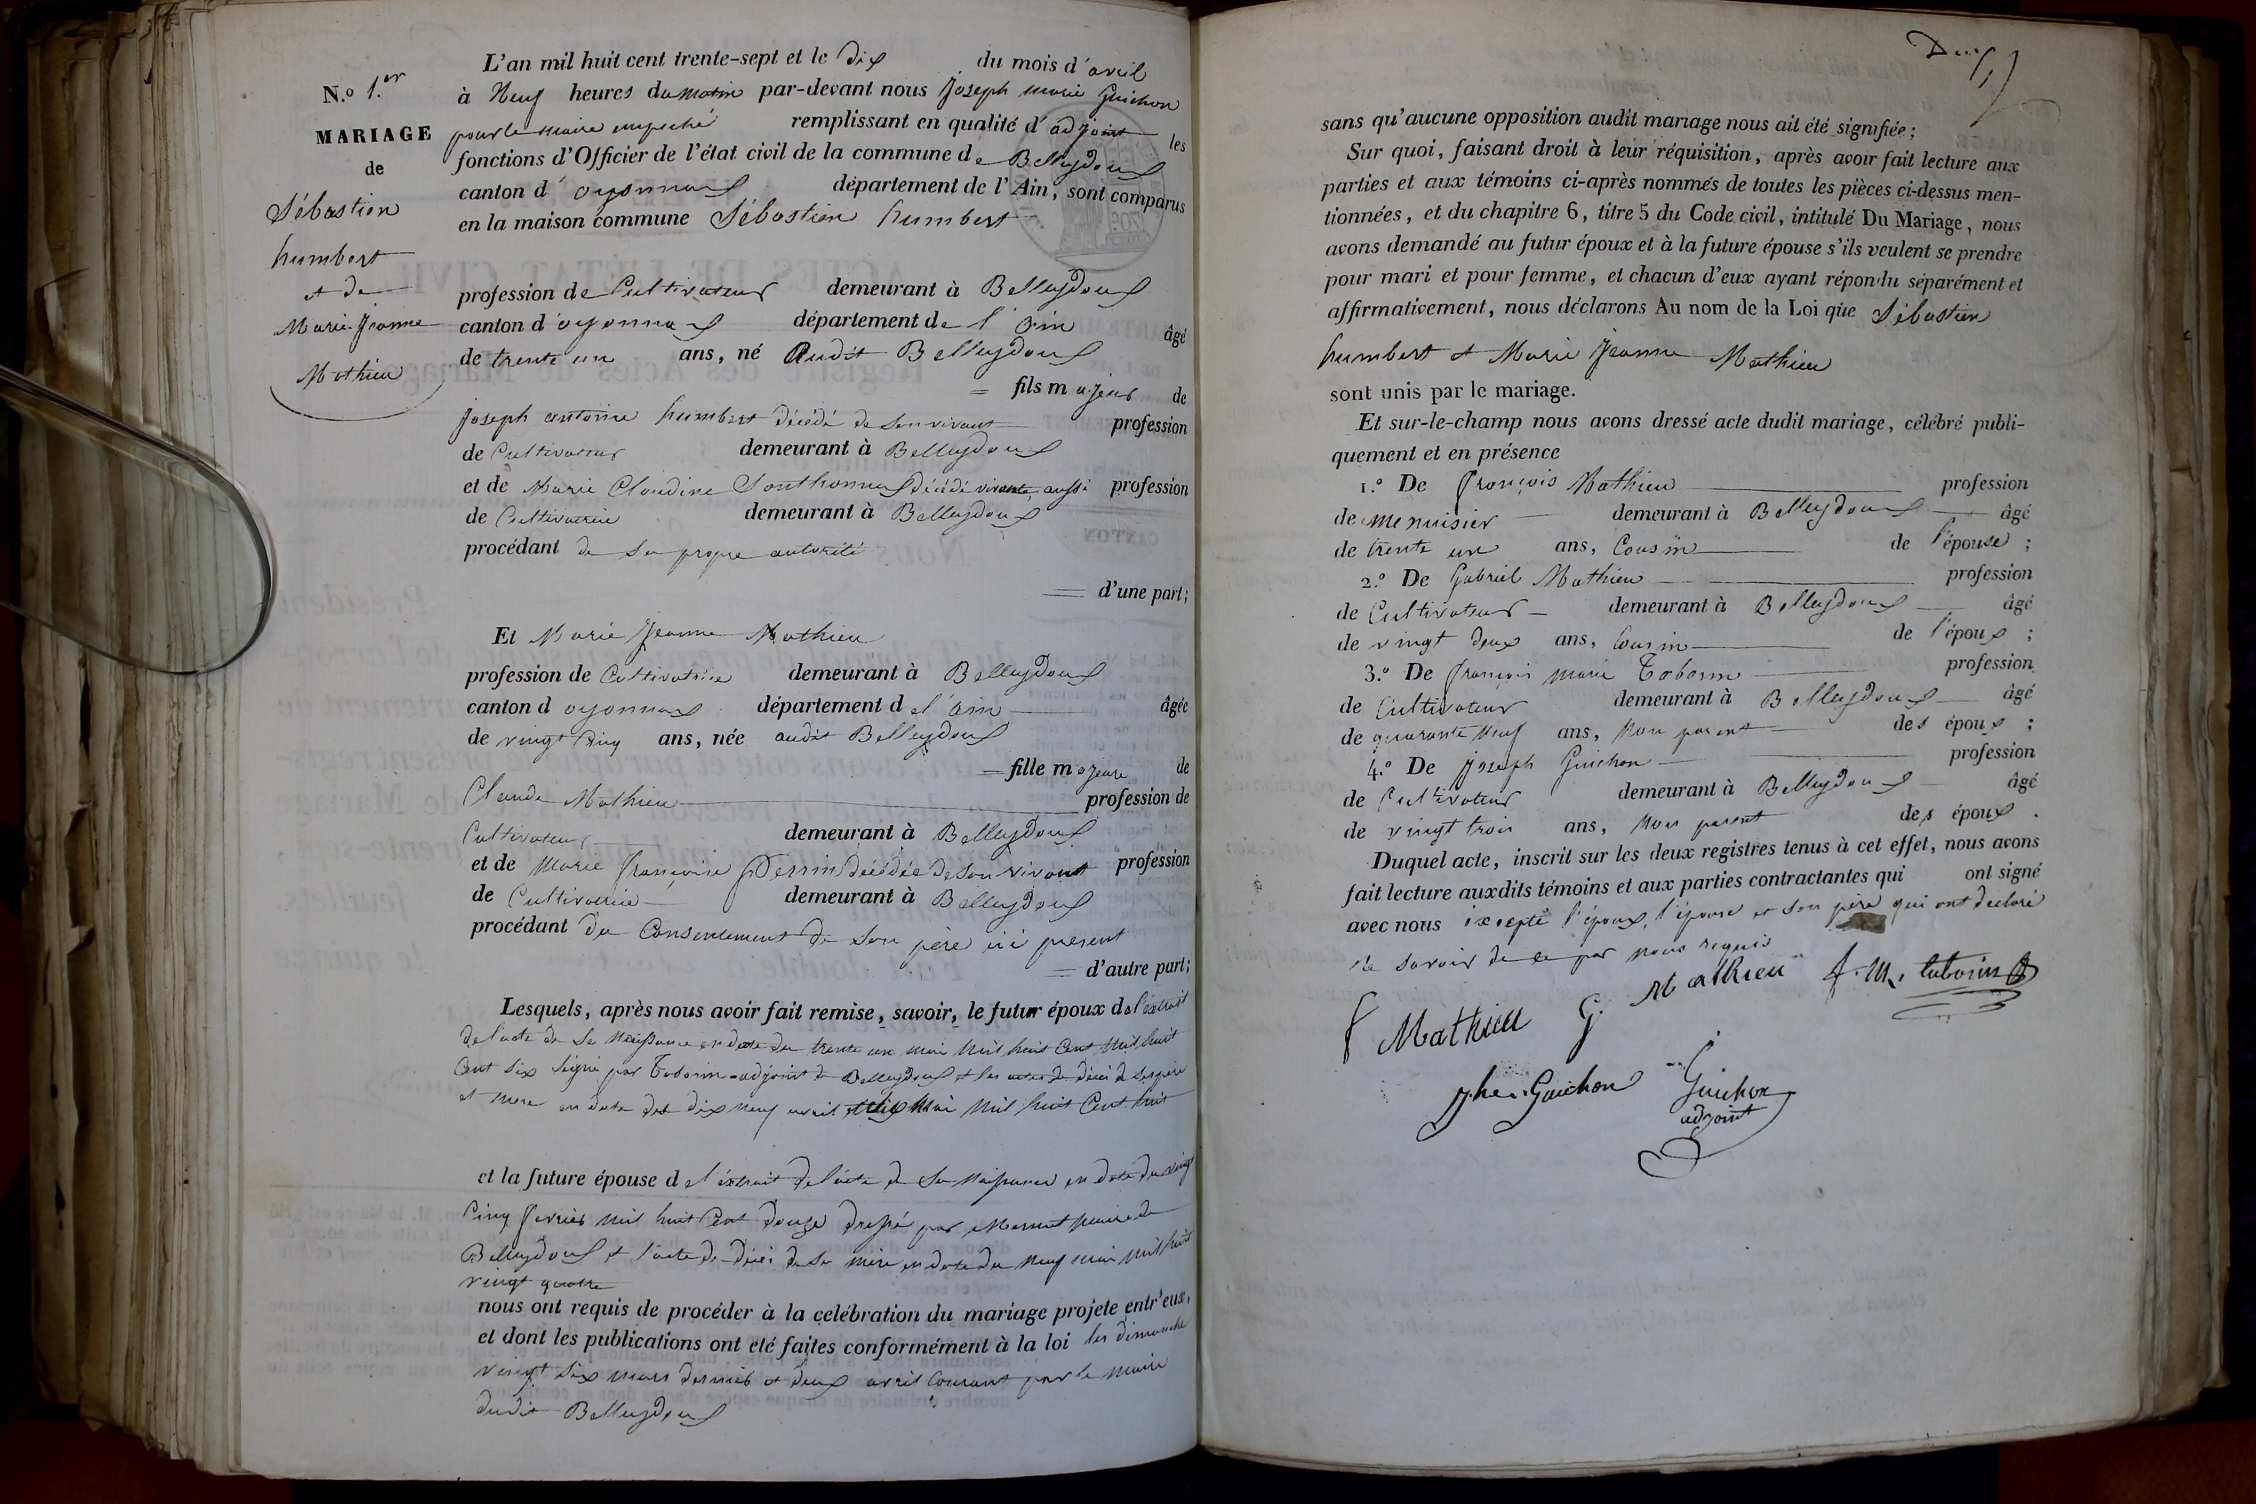 N.o 1.er
MARIAGE
de
Sébastien
humbert
et de
Marie Jeanne
Mathieu
L'an mil huit cent trente-sept et le dix du mois d'avril
à Neuf heures du matin par-devant nous Joseph marie Guichon
pour le maire empeché remplissant en qualité d'adjoint les
fonctions d'Officier de l'état civil de la commune de Belleydoux
canton d'oyonnax département de l'Ain, sont comparus
en la maison commune Sébastien humbert
profession de Cultivateur demeurant à Belleydoux
canton d'oyonnax département de l'ain âgé
de trente un ans, né Audit Belleydoux
= fils majeur de
Joseph antoine humbert décédé de son vivant profession
de Cultivateur demeurant à Belleydoux
et de Marie Claudine Sonthonnax décédé vivante aussi profession
de Cultivatrice demeurant à Belleydoux
procédant de sa propre autorité
= d'une part;
Et Marie Jeanne Mathieu
profession de Cultivatrice demeurant à Belleydoux
canton d oyonnax département d el'ain âgée
de vingt Cinq ans, née audit Belleydoux
= fille majeure de
Claude Mathieu profession de
Cultivateur demeurant à Belleydoux
et de Marie Françoise Perrin décédée de son vivant profession
de Cultivatrice demeurant à Belleydoux
procédant du Consentement de son père ici present
= d'autre part;
Lesquels, après nous avoir fait remise, savoir, le futur époux de l'extrait
de l'acte de sa Naissance en date du trente un mai Mil huit Cent Mil huit
Cent six signé par Tabourin adjoint de Belleydoux et les actes de décès de ses père
et mere en date des dix neuf avril et dix Mai Mil huit Cent huit
et la future épouse d el'extrait de l'acte de sa Naissance en date du vingt
Cinq fevrier Mil huit Cent douze dressé par Mermet maire de
Belleydoux et l'acte de décès de sa mère en date du neuf mai Mil huit
vingt quatre
nous ont requis de procéder à la celébration du mariage projeté entr'eux,
et dont les publications ont eté faites conformément à la loi les dimanche
vingt six mars dernier et deux avril Courant par le maire
dudit Belleydoux
Deux
sans qu'aucune opposition audit mariage nous ait été signifiée;
Sur quoi, faisant droit à leur réquisition, après avoir fait lecture aux
parties et aux témoins ci-après nommés de toutes les pièces ci-dessus men-
tionnées, et du chapitre 6, titre 5 du Code civil, intitulé Du Mariage, nous
avons demandé au futur époux et à la future épouse s'ils veulent se prendre
pour mari et pour femme, et chacun d'eux ayant répondu séparément et
affirmativement, nous déclarons Au nom de la Loi que Sébastien
humbert et Marie Jeanne Mathieu
sont unis par le mariage.
Et sur-le-champ nous avons dressé acte dudit mariage, célébré publi-
quement et en présence
1.o De François Mathieu profession
de menuisier demeurant à Belleydoux âgé
de trente un ans, Cousin de l'épouse;
2.o De Gabriel Mathieu profession
de Cultivateur demeurant à Belleydoux âgé
de vingt deux ans, Cousin de l'époux;
3.o De François Marie Tabourin profession
de Cultivateur demeurant à Belleydoux âgé
de quarante Neuf ans, Non parent des époux;
4.o De Joseph Guichon profession
de Cultivateur demeurant à Belleydoux âgé
de vingt trois ans, Non parent des époux.
Duquel acte, inscrit sur les deux registres tenus à cet effet, nous avons
fait lecture auxdits témoins et aux parties contractantes qui ont signé
avec nous excepté l'époux, l'épouse et son père qui ont declaré
ne savoir de ce par nous requis
F Mathieu G. Mathieu f. m. tabourin
Jh. Guichon Guichon
adjoint